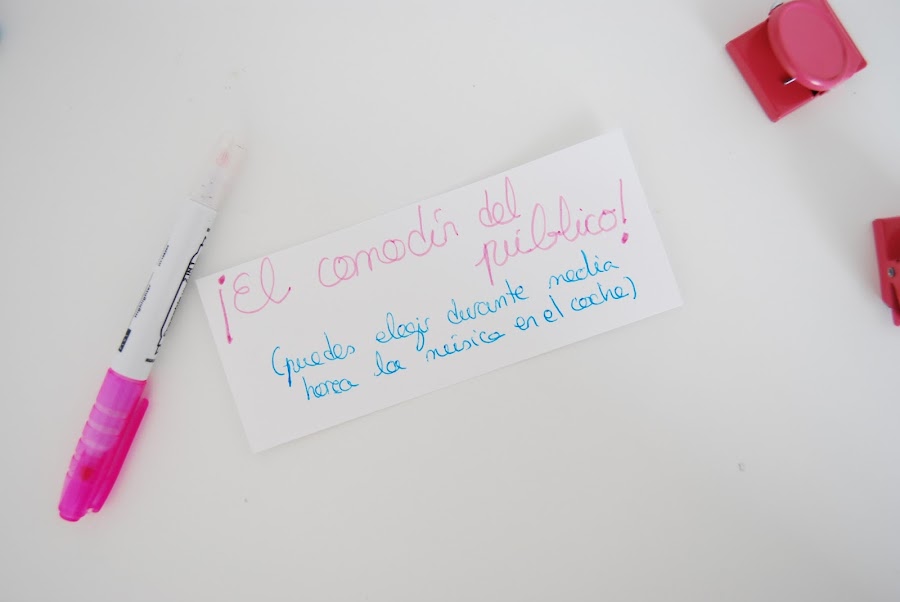 ¡El comodín del
público!
(puedes elegir durante media
hora la música en el coche)